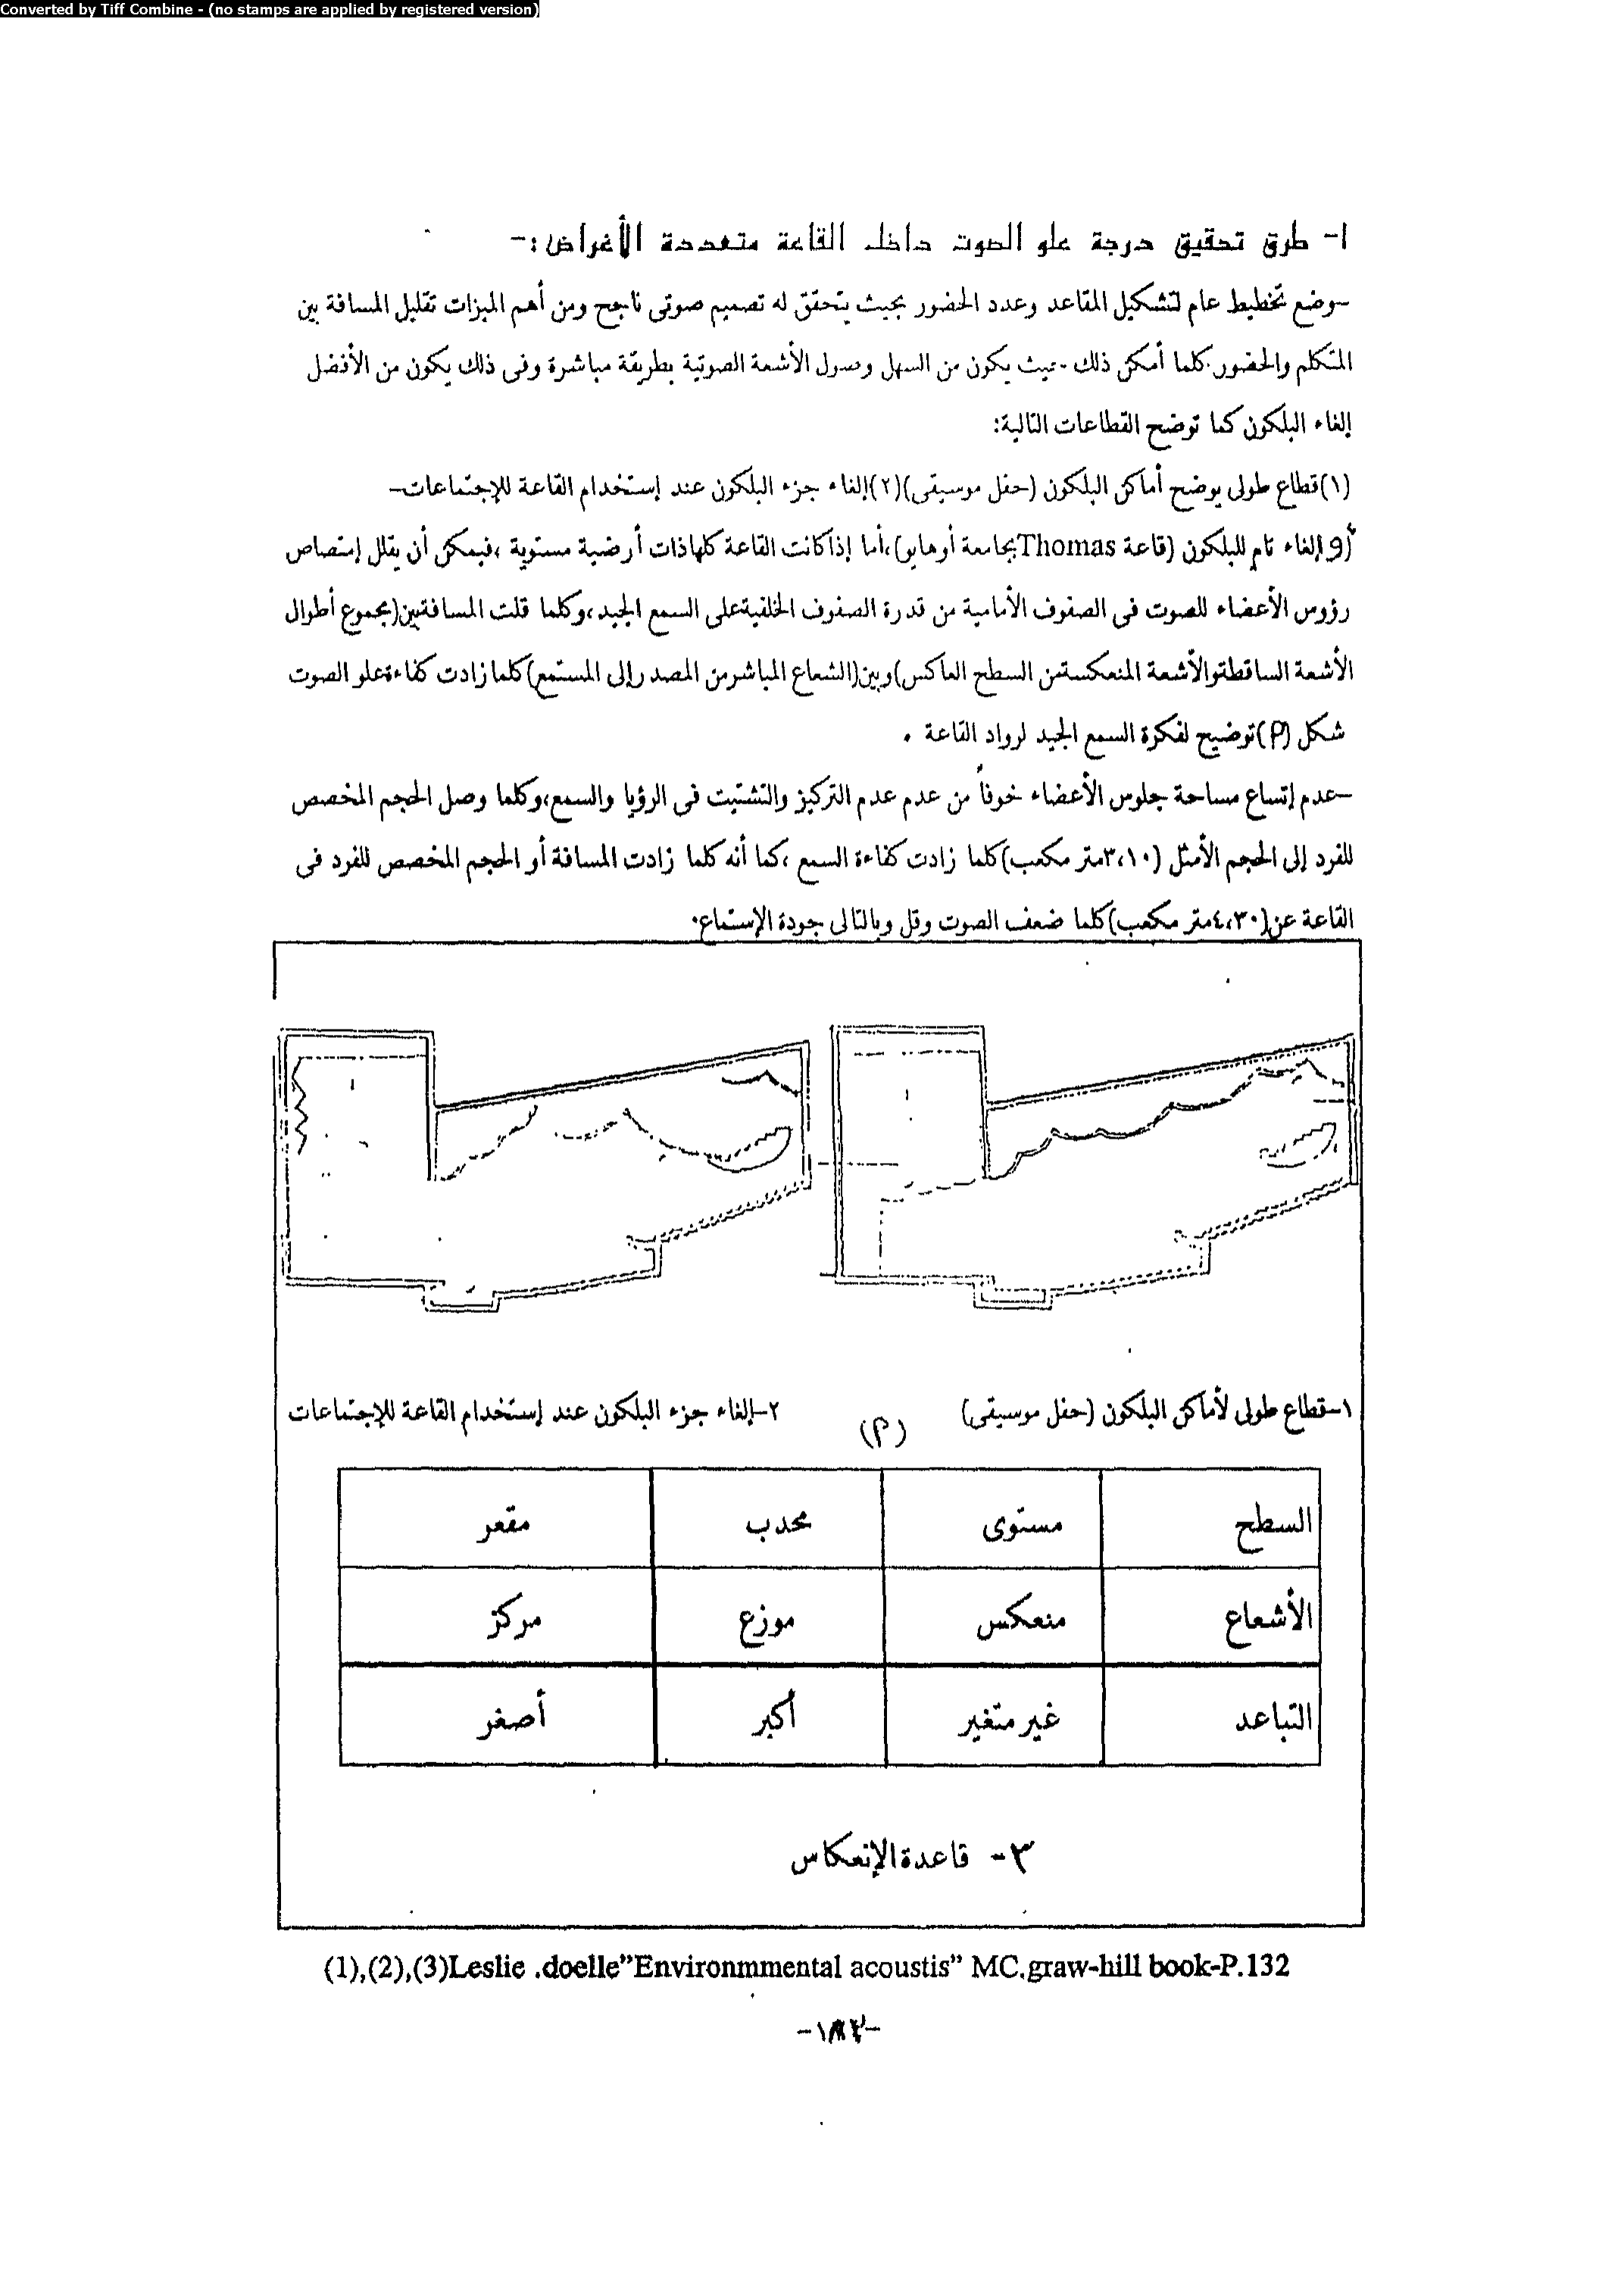 Converted by Tiff Combine - (no stamps are applied by registered version)
١- طرق تحقيق درجة علو الصوت داخل القاعة متعددة الأغراض:-
-وضع تخطيط عام لتشكيل المقاعد وعدد الحضور بحيث يتحقق له تصميم صوتى ناجح ومن أهم الميزات تقليل المسافة بين
المتكلم والحضور كلما أمكن ذلك - بحيث يكون من السهل وصول الأشعة الصوتية بطريقة مباشرة وفى ذلك يكون من الأفضل
إلغاء البلكون كما توضح القطاعات التالية:
(١)قطاع طولى يوضح أماكن البلكون (حفل موسيقى)(٢)إلغاء جزء البلكون عند إستخدام القاعة للإجتماعات-
أو إلغاء تام للبلكون (قاعة Thomas بجامعة أوهايو)،أما إذا كانت القاعة كلها ذات أرضية مستوية ،فيمكن أن يقلل إمتصاص
رؤوس الأعضاء للصوت فى الصفوف الأمامية من قدرة الصفوف الخلفية على السمع الجيد،وكلما قلت المسافة بين(مجموع أطوال
الأشعة الساقطة والأشعة المنعكسة من السطح العاكس)وبين(الشعاع المباشر من المصدر إلى المستمع)كلما زادت كفاءة علو الصوت
شكل (م)توضيح لفكرة السمع الجيد لرواد القاعة .
-عدم إتساع مساحة جلوس الأعضاء خوفاً من عدم عدم التركيز والتشتيت فى الرؤيا والسمع،وكلما وصل الحجم المخصص
للفرد إلى الحجم الأمثل (٣،١٠متر مكعب)كلما زادت كفاءة السمع ،كما أنه كلما زادت المسافة أو الحجم المخصص للفرد فى
القاعة عن(٤،٣٠متر مكعب)كلما ضعف الصوت وقل وبالتالى جودة الإستماع.
١-قطاع طولى لأماكن البلكون (حفل موسيقى)
(م)
٢-إلغاء جزء البلكون عند إستخدام القاعة للإجتماعات
السطح مستوى محدب مقعر
الأشعاع منعكس موزع مركز
التباعد غير متغير أكبر أصغر
٣- قاعدة الإنعكاس
(1),(2),(3)Leslie .doelle"Environmmental acoustis" MC.graw-hill book-P.132